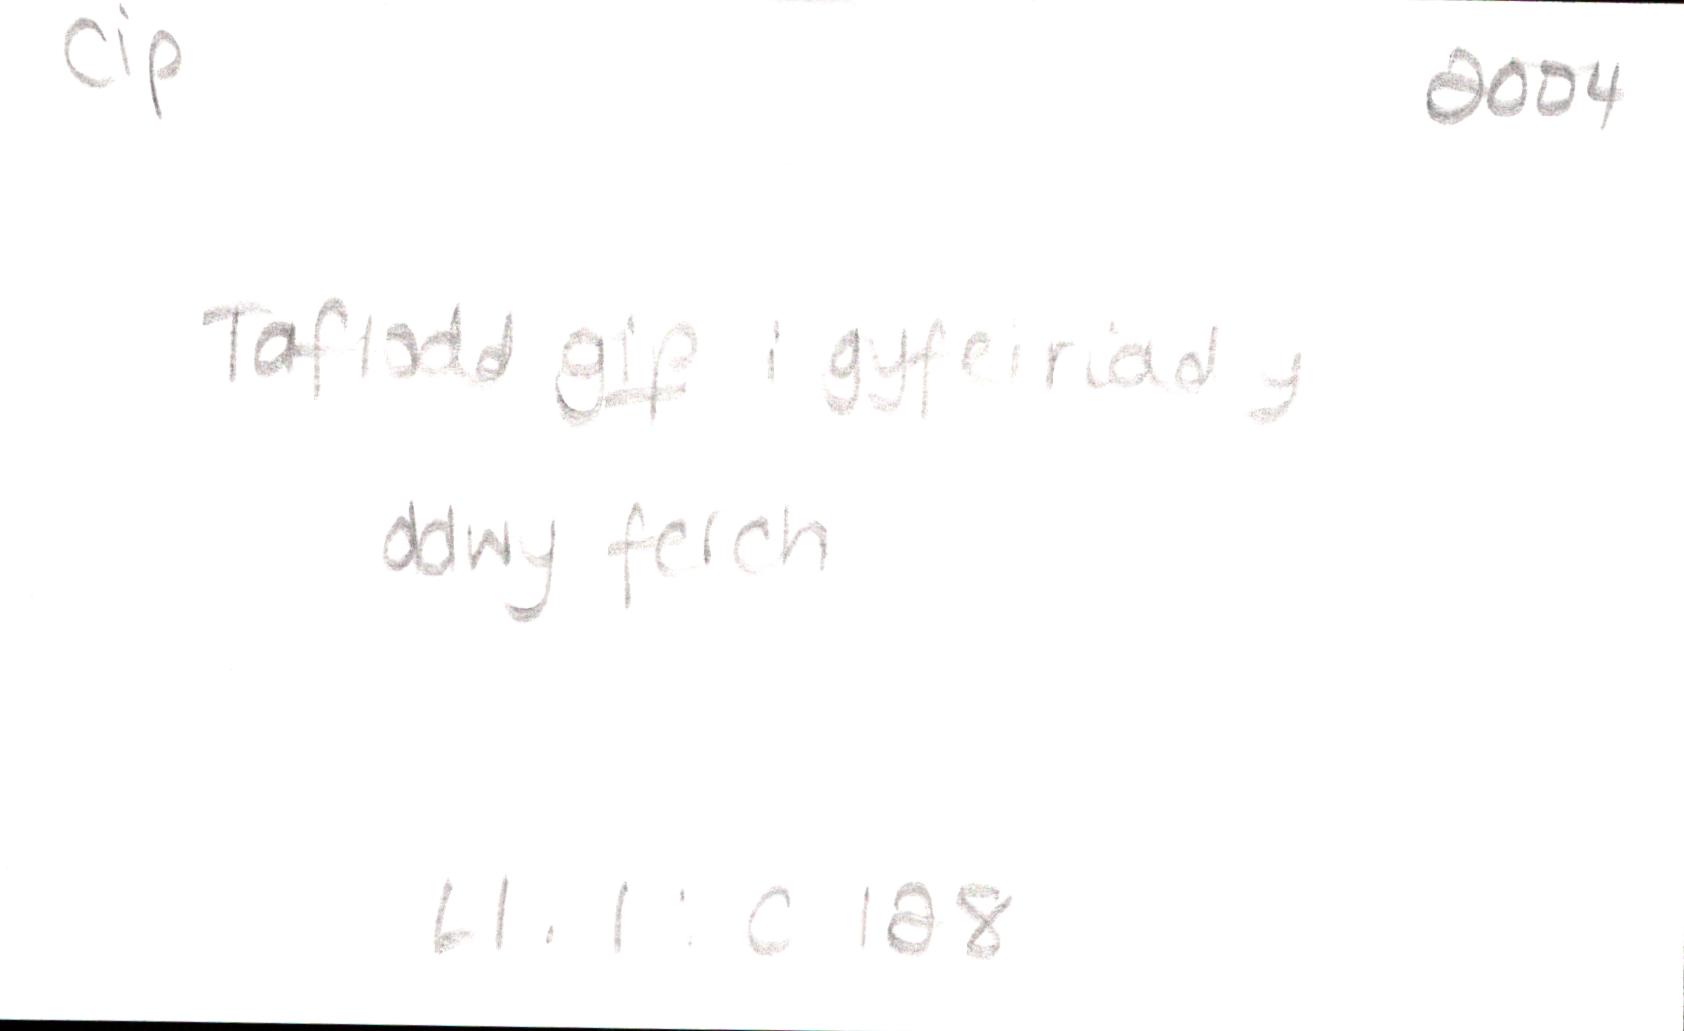 cip 2004
Taflodd gip i gyfeiriad y
ddwy ferch
Ll. 1 : C 128